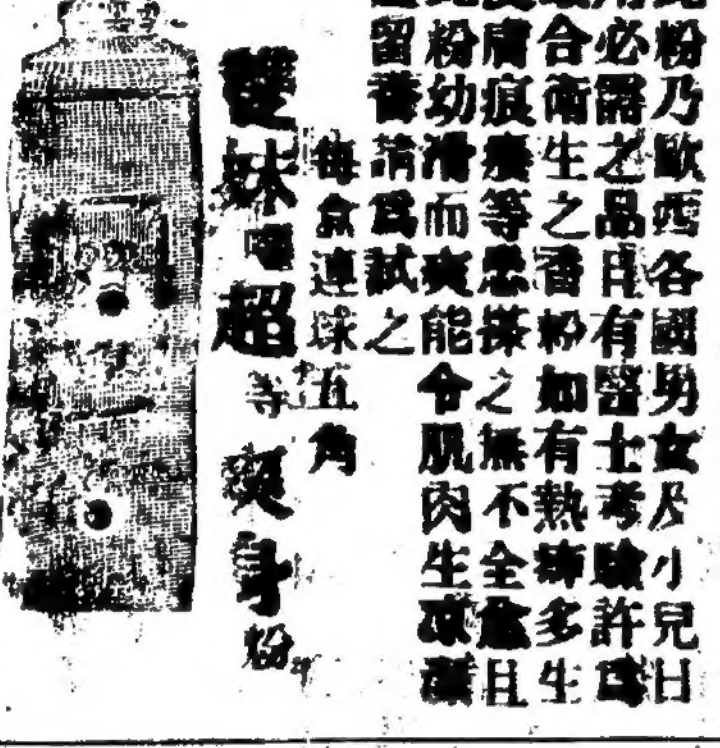 此粉乃歐西各國男女及小兒日
用必需之品且有醫士考驗許爲
合衛生之香粉如有熱痱多生
皮膚痕癢等患搽之無不全愈且
此粉幼滑而爽能令肌肉生涼
留請爲試之
每盒連球五角
雙妹嘜超等爽身粉